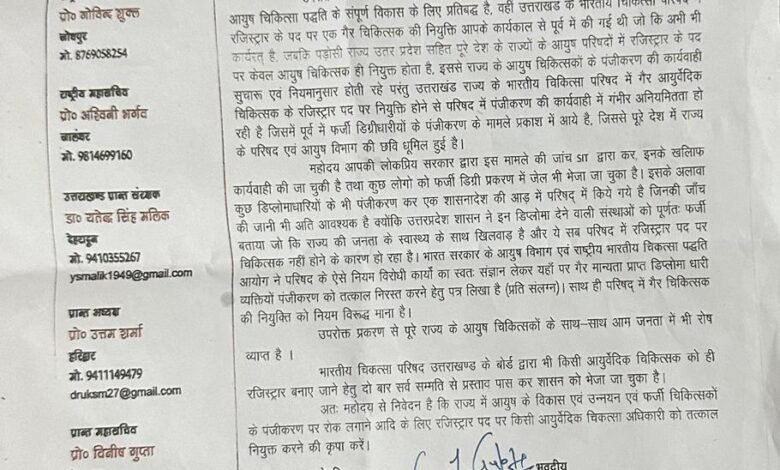 प्रो० गोविन्द शुक्ल
जोधपुर
मो. 8769058254
राष्ट्रीय महासचिव
प्रो० अश्विनी भार्गव
जालंधर
मो. 9814699160
उत्तराखण्ड प्रान्त संरक्षक
डा० यतेन्द्र सिंह मलिक
देहरादून
मो. 9410355267
ysmalik1949@gmail.com
प्रान्त अध्यक्ष
प्रो० उत्तम शर्मा
हरिद्वार
मो. 9411149479
druksm27@gmail.com
प्रान्त महासचिव
प्रो० विनीष गुप्ता
आयुष चिकित्सा पद्धति के संपूर्ण विकास के लिए प्रतिबद्ध है, वहीं उत्तराखण्ड के भारतीय चिकित्सा परिषद
रजिस्ट्रार के पद पर एक गैर चिकित्सक की नियुक्ति आपके कार्यकाल से पूर्व में की गई थी जो कि अभी भी
कार्यरत् है, जबकि पड़ोसी राज्य उतर प्रदेश सहित पूरे देश के राज्यों के आयुष परिषदों में रजिस्ट्रार के पद
पर केवल आयुष चिकित्सक ही नियुक्त होता है, इससे राज्य के आयुष चिकित्सकों के पंजीकरण की कार्यवाही
सुचारू एवं नियमानुसार होती रहे परंतु उत्तराखंड राज्य के भारतीय चिकित्सा परिषद में गैर आयुर्वेदिक
चिकित्सक के रजिस्ट्रार पद पर नियुक्ति होने से परिषद में पंजीकरण की कार्यवाही में गंभीर अनियमितता हो
रही है जिसमें पूर्व में फर्जी डिग्रीधारीयों के पंजीकरण के मामले प्रकाश में आये है, जिससे पूरे देश में राज्य
के परिषद एवं आयुष विभाग की छवि धूमिल हुई है।
महोदय आपकी लोकप्रिय सरकार द्वारा इस मामले की जांच SIT द्वारा कर, इनके खलिाफ
कार्यवाही की जा चुकी है तथा कुछ लोगो को फर्जी डिग्री प्रकरण में जेल भी भेजा जा चुका है। इसके अलावा
कुछ डिप्लोमाधारियों के भी पंजीकरण कर एक शासनादेश की आड़ में परिषद् में किये गये है जिनकी जाँच
की जानी भी अति आवश्यक है क्योंकि उत्तरप्रदेश शासन ने इन डिप्लोमा देने वाली संस्थाओं को पूर्णतः फर्जी
बताया जो कि राज्य की जनता के स्वास्थ्य के साथ खिलवाड़ है और ये सब परिषद में रजिस्ट्रार पद पर
चिकित्सक नहीं होने के कारण हो रहा है। भारत सरकार के आयुष विभाग एवं राष्ट्रीय भारतीय चिकित्सा पद्धति
आयोग ने परिषद के ऐसे नियम विरोधी कार्यो का स्वतः संज्ञान लेकर यहाँ पर गैर मान्यता प्राप्त डिप्लोमा धारी
व्यक्तियों पंजीकरण को तत्काल निरस्त करने हेतु पत्र लिखा है (प्रति संलग्न)। साथ ही परिषद् में गैर चिकित्सक
की नियुक्ति को नियम विरूद्ध माना है।
उपरोक्त प्रकरण से पूरे राज्य के आयुष चिकित्सकों के साथ-साथ आम जनता में भी रोष
व्याप्त है ।
भारतीय चिकत्सा परिषद उत्तराखण्ड के बोर्ड द्वारा भी किसी आयुर्वेदिक चिकित्सक को ही
रजिस्ट्रार बनाए जाने हेतु दो बार सर्व सम्मति से प्रस्ताव पास कर शासन को भेजा जा चुका है।
अतः महोदय से निवेदन है कि राज्य में आयुष के विकास एवं उन्नयन एवं फर्जी चिकित्सकों
के पंजीकरण पर रोक लगाने आदि के लिए रजिस्ट्रार पद पर किसी आयुर्वेदिक चिकत्सा अधिकारी को तत्काल
नियुक्त करने की कृपा करें।
भवदीय